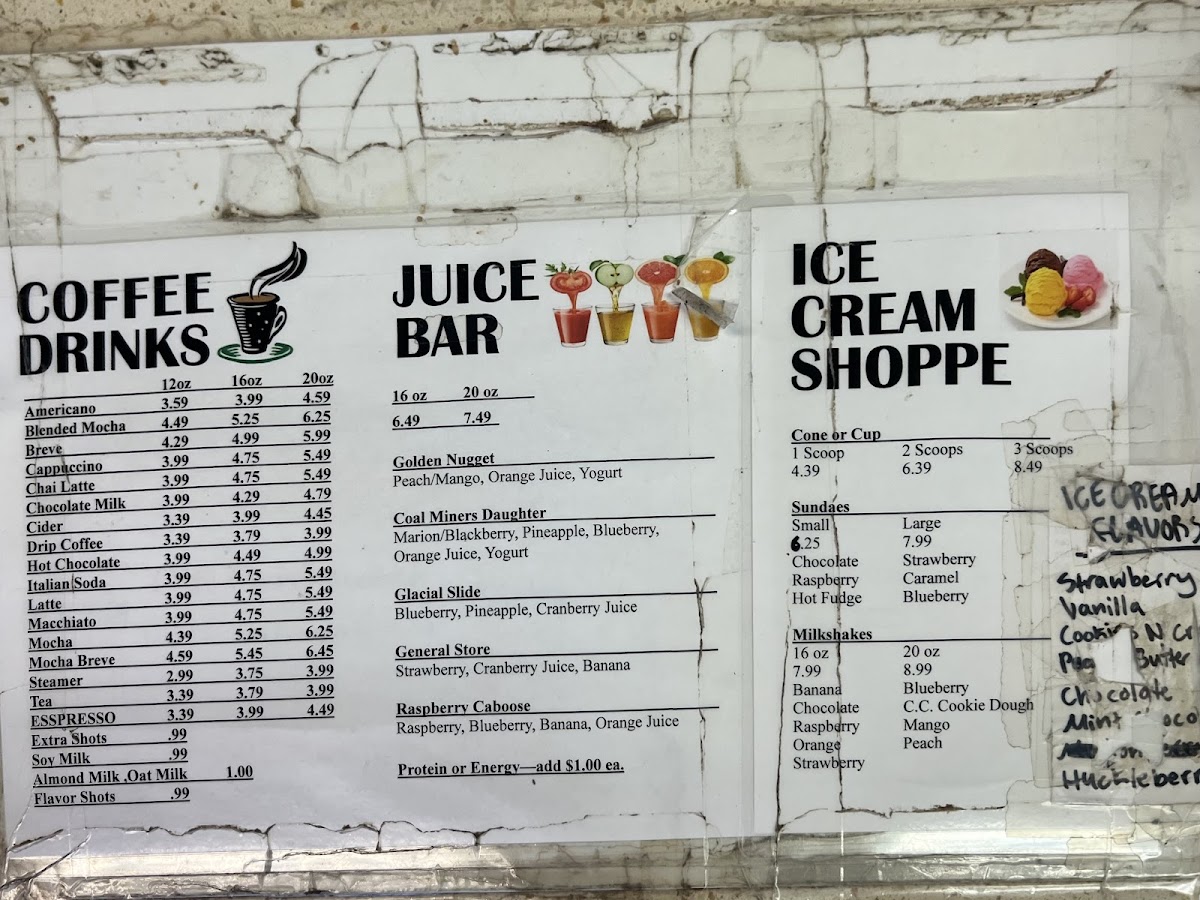 COFFEE
DRINKS
12oz 16oz 20oz
Americano 3.59 3.99 4.59
Blended Mocha 4.49 5.25 6.25
Breve 4.29 4.99 5.99
Cappuccino 3.99 4.75 5.49
Chai Latte 3.99 4.75 5.49
Chocolate Milk 3.99 4.29 4.79
Cider 3.39 3.99 4.45
Drip Coffee 3.39 3.79 3.99
Hot Chocolate 3.99 4.49 4.99
Italian Soda 3.99 4.75 5.49
Latte 3.99 4.75 5.49
Macchiato 3.99 4.75 5.49
Mocha 4.39 5.25 6.25
Mocha Breve 4.59 5.45 6.45
Steamer 2.99 3.75 3.99
Tea 3.39 3.79 3.99
ESSPRESSO 3.39 3.99 4.49
Extra Shots .99
Soy Milk .99
Almond Milk ,Oat Milk 1.00
Flavor Shots .99
JUICE
BAR
16 oz 20 oz
6.49 7.49
Golden Nugget
Peach/Mango, Orange Juice, Yogurt
Coal Miners Daughter
Marion/Blackberry, Pineapple, Blueberry,
Orange Juice, Yogurt
Glacial Slide
Blueberry, Pineapple, Cranberry Juice
General Store
Strawberry, Cranberry Juice, Banana
Raspberry Caboose
Raspberry, Blueberry, Banana, Orange Juice
Protein or Energy—add $1.00 ea.
ICE
CREAM
SHOPPE
Cone or Cup
1 Scoop 2 Scoops 3 Scoops
4.39 6.39 8.49
Sundaes
Small Large
6.25 7.99
Chocolate Strawberry
Raspberry Caramel
Hot Fudge Blueberry
Milkshakes
16 oz 20 oz
7.99 8.99
Banana Blueberry
Chocolate C.C. Cookie Dough
Raspberry Mango
Orange Peach
Strawberry
ICE CREAM
FLAVORS
Strawberry
Vanilla
Cookies N Cr
Butter
Chocolate
Mint
Huckleberr